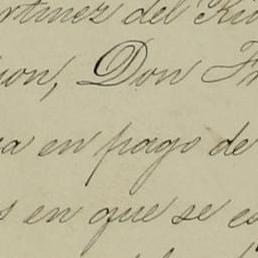 rtinez del Rio
ion, Don Fr
a en pago de
s en que se es